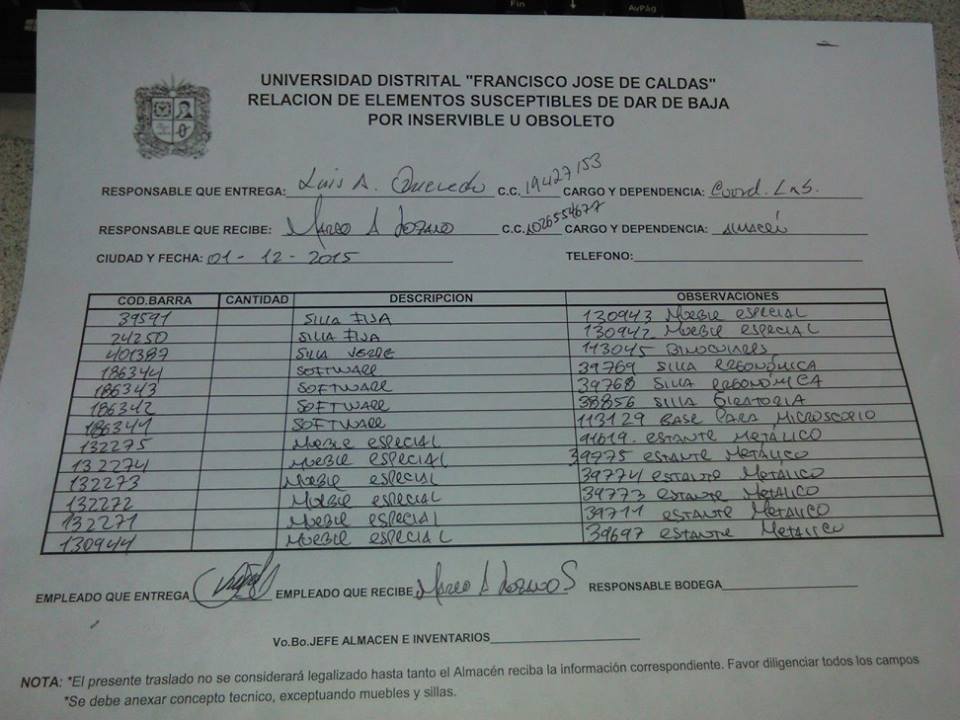 Fin
AvPág
UNIVERSIDAD DISTRITAL "FRANCISCO JOSE DE CALDAS"
RELACION DE ELEMENTOS SUSCEPTIBLES DE DAR DE BAJA
POR INSERVIBLE U OBSOLETO
RESPONSABLE QUE ENTREGA: Luis A. Quevedo C.C. 19427153 CARGO Y DEPENDENCIA: Coord. Lab.
RESPONSABLE QUE RECIBE: Marco A Lozano C.C. 1026554677 CARGO Y DEPENDENCIA: Almacén
CIUDAD Y FECHA: 01-12-2015 TELEFONO:
COD.BARRA CANTIDAD DESCRIPCION OBSERVACIONES
39591 SILLA FIJA 130943 MUEBLE ESPECIAL
24250 SILLA FIJA 130942 MUEBLE ESPECIAL
401387 SILLA VERDE 113045 BINOCULARES
186344 SOFTWARE 39769 SILLA ERGONÓMICA
186343 SOFTWARE 39768 SILLA ERGONÓMICA
186342 SOFTWARE 38856 SILLA GIRATORIA
186341 SOFTWARE 113129 BASE PARA MICROSCOPIO
132275 MUEBLE ESPECIAL 91619 ESTANTE METÁLICO
132274 MUEBLE ESPECIAL 39775 ESTANTE METÁLICO
132273 MUEBLE ESPECIAL 39774 ESTANTE METÁLICO
132272 MUEBLE ESPECIAL 39773 ESTANTE METALICO
132271 MUEBLE ESPECIAL 39711 ESTANTE METALICO
130944 MUEBLE ESPECIAL 39697 ESTANTE METALICO
EMPLEADO QUE ENTREGA EMPLEADO QUE RECIBE Marco A Lozano S RESPONSABLE BODEGA
Vo.Bo.JEFE ALMACEN E INVENTARIOS
NOTA: *El presente traslado no se considerará legalizado hasta tanto el Almacén reciba la información correspondiente. Favor diligenciar todos los campos
*Se debe anexar concepto tecnico, exceptuando muebles y sillas.